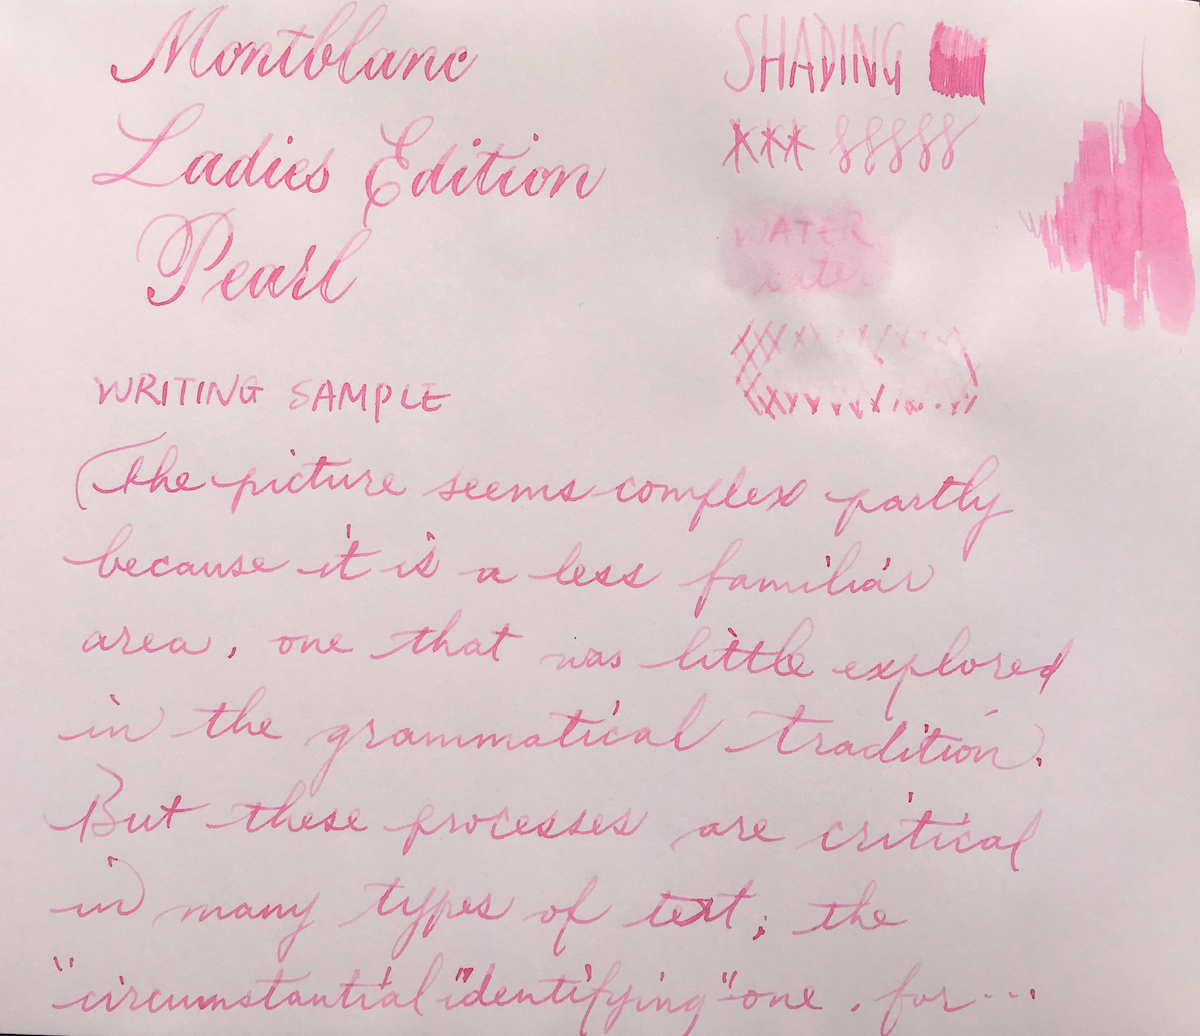 Montblanc
Ladies Edition
Pearl
SHADING
WATER
water
WRITING SAMPLE
The picture seems complex partly
because it is a less familiar
area, one that was little explored
in the grammatical tradition.
But these processes are critical
in many types of text; the
"circumstantial "identifying"-one, for...